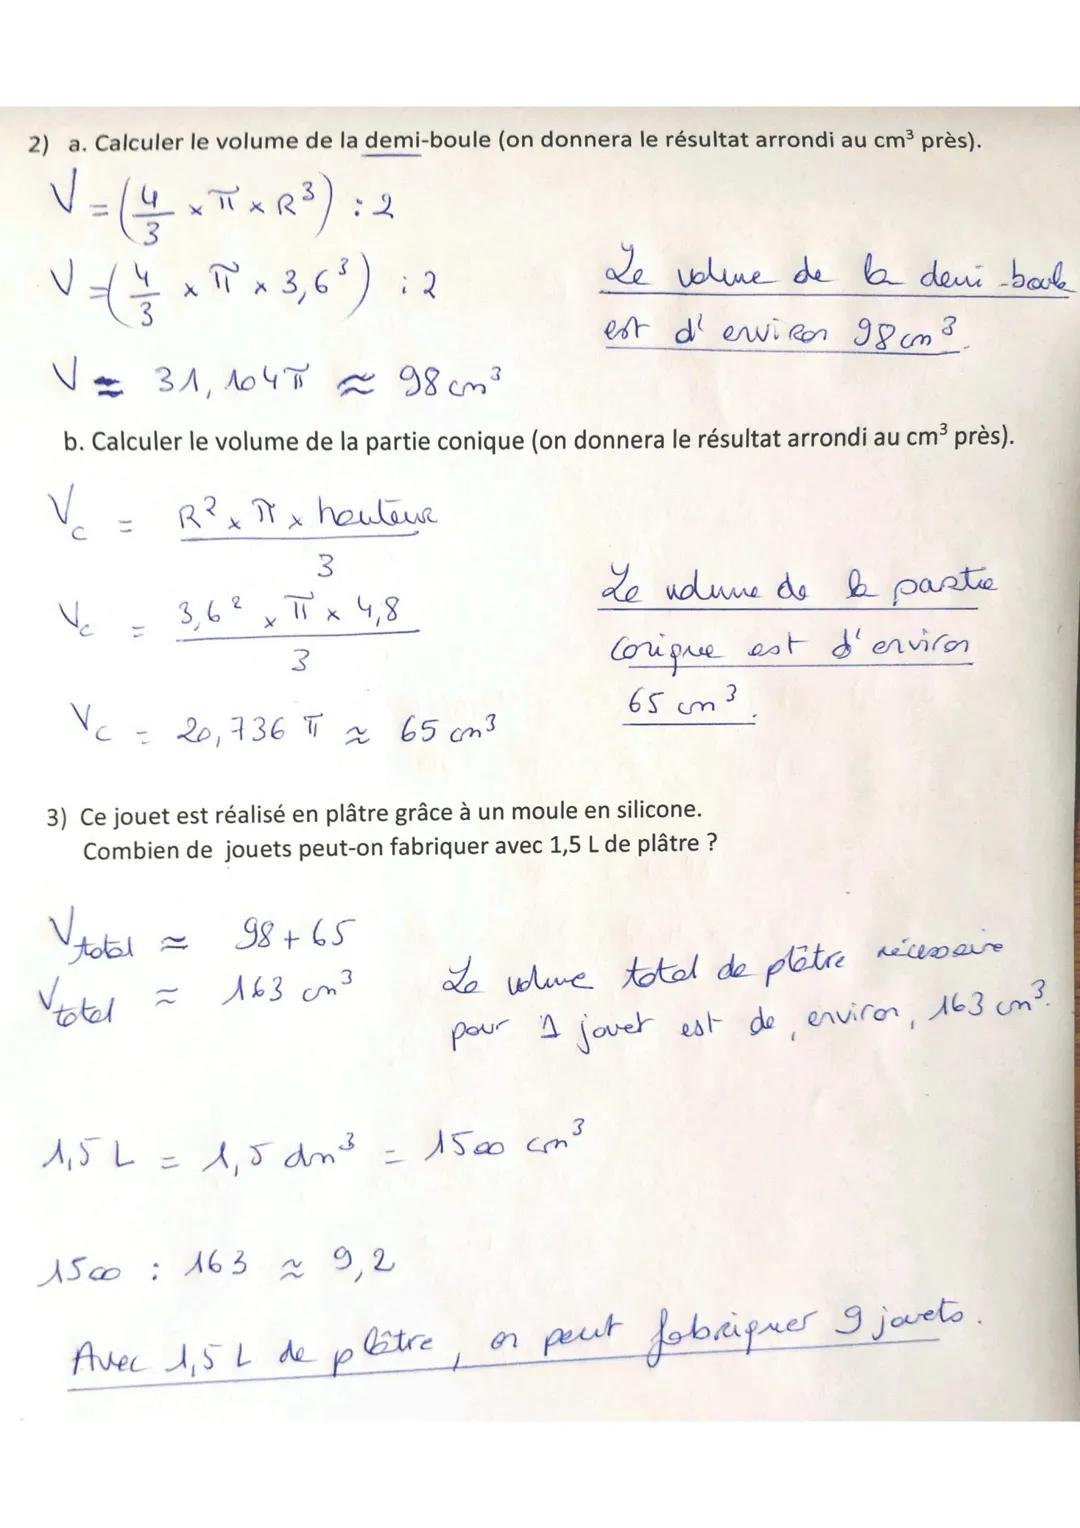 2) a. Calculer le volume de la demi-boule (on donnera le résultat arrondi au cm³ près).
V = (4/3 × π × R³) : 2
V = (4/3 × π × 3,6³) : 2
Le volume de la demi-boule
est d'environ 98 cm³.
V = 31,104 π ≈ 98 cm³
b. Calculer le volume de la partie conique (on donnera le résultat arrondi au cm³ près).
Vc = R² × π × hauteur / 3
Vc = 3,6² × π × 4,8 / 3
Le volume de la partie
conique est d'environ
65 cm³.
Vc = 20,736 π ≈ 65 cm³
3) Ce jouet est réalisé en plâtre grâce à un moule en silicone.
Combien de jouets peut-on fabriquer avec 1,5 L de plâtre ?
Vtotal ≈ 98 + 65
Vtotal ≈ 163 cm³
Le volume total de plâtre nécessaire
pour 1 jouet est de, environ, 163 cm³.
1,5 L = 1,5 dm³ = 1500 cm³
1500 : 163 ≈ 9,2
Avec 1,5 L de plâtre, on peut fabriquer 9 jouets.